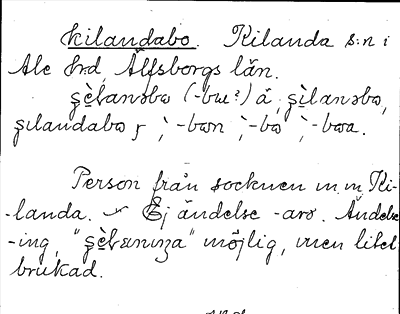 Kilandabo. Kilanda s:n i
Ale hrd, Älfsborgs län.
ʂè̱lanəbɷ (-bɯ?) å, ʂìlanəbɷ,
ʂɩlandabɷ ɼ, `-bɷn, `-bɷ, `-bɷa.
Person från socknen m. m. Ki-
-landa. Ej ändelse -aro. Ändelse
-ing, "ʂè̱lanɩŋa" möjlig, men litet
brukad.